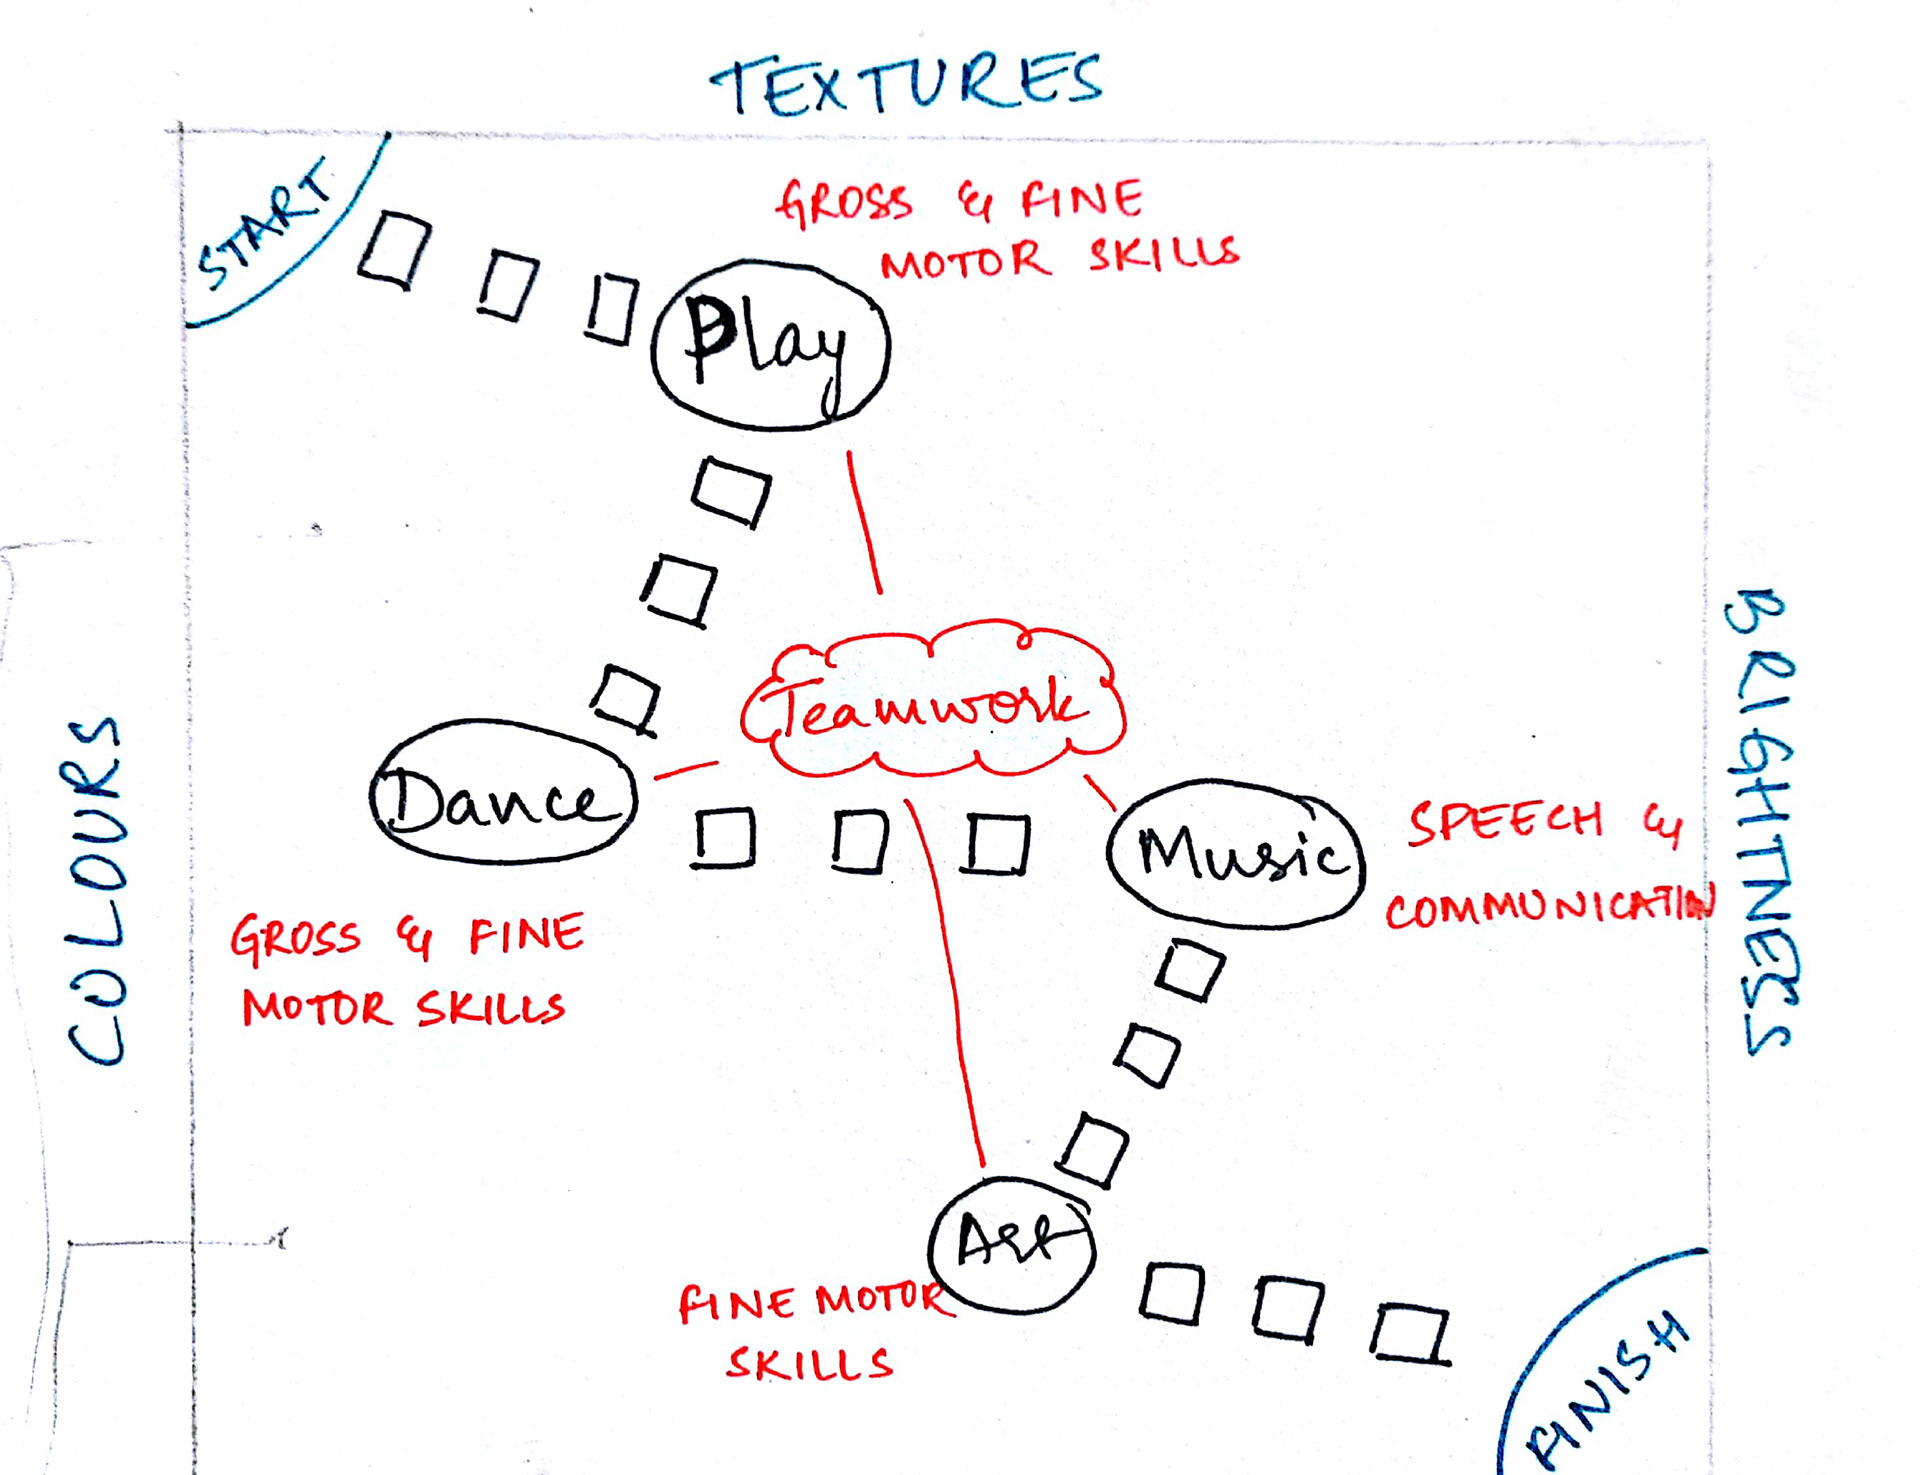 TEXTURES
START
GROSS & FINE
MOTOR SKILLS
Play
Teamwork
Dance
Music
SPEECH &
COMMUNICATIN
GROSS & FINE
MOTOR SKILLS
COLOURS
BRIGHTNESS
Art
FINE MOTOR
SKILLS
FINISH